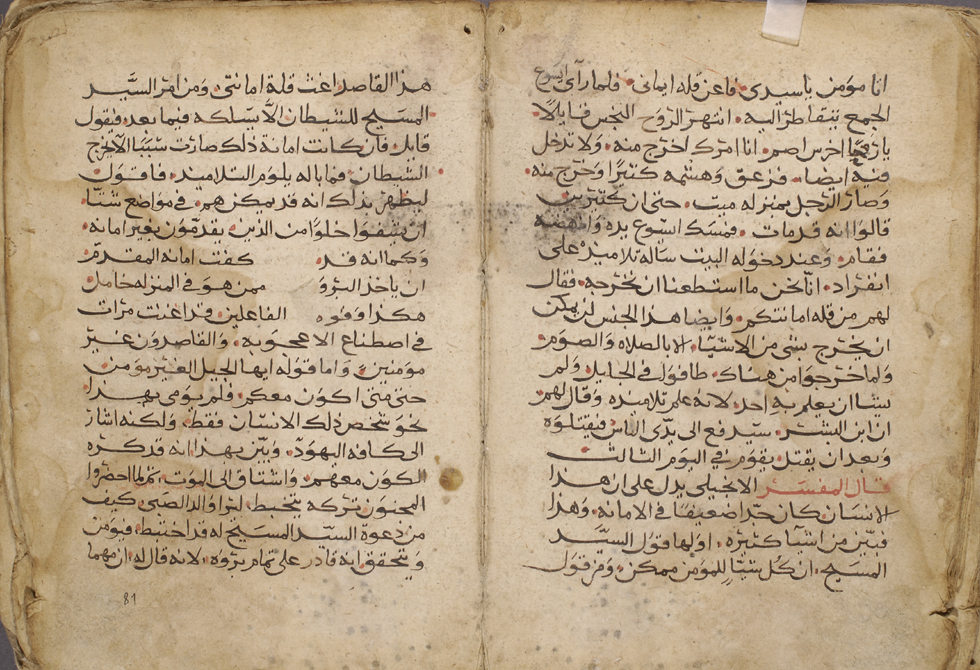 انا مؤمن ياسيدى فاعن قله ايمانى فلما راى ايسوع
الجمع تتقاطر اليه انتهر الروح النجس قايلا
يا ارخرس اصم انا امرك اخرج منه ولا تدخل
فيه ايضا فزعق وهشمه كثيرا وخرج منه
وصار الرجل بمنزله ميت حتى ان كثيرين
قالوا انه قد مات فمسك ايسوع يده وانهضه
فقام وعند دخوله البيت ساله تلاميذه على
انفراد انا نحن ما استطعنا ان نخرجه فقال
لهم من قله امانتكم وايضا هدا الجنس لن يمكن
ان يخرج بشى من الاشيا الا بالصلاه والصوم
ولما خرجوا من هناك طافوا فى الجليل ولم
يشا ان يعلم به احد لانه علم تلاميذه وقال لهم
ان ابن البشر سيدفع الى يدى الناس فيقتلوه
وبعد ان يقتل يقوم فى اليوم الثالث
قال المفسر الانجيلى يدل على ان هدا
الانسان كان جدا ضعيفا فى الامانه وهدا
فبين من اشيا كثيره اولها قول السيد
المسيح ان كل شيا للمومن ممكن ومن قول
هذا القاصد اغث قلة امانتى ومن امر السيد
المسيح للشيطان الا يسلكه فيما بعد فنقول
قايل فان كانت امانة ذلك صارت سببا الا يخرج
الشيطان فما باله يلوم التلاميذ فاقول
ليظهر بذلك انه قد يمكنهم فى مواضع شتا
ان يشفوا خلوا من الذين يقدمون بغير امانه
وكما انه قد كفت امانه المقدم
ان ياخذ البرو ممن هو فى المنزله خامل
هكذا وقوه الفاعلين قد اغنت مرات
فى اصطناع الاعجوبه والقاصدون غير
مومنين واما قوله ايها الجيل الغير مومن
حتى متى اكون معكم فلم يومى بهدا
نحو شخص ذلك الانسان فقط ولكنه اشار
الى كافه اليهود وبين بهدا انه قد كره
الكون معهم واشتاق الى الموت ثم لما احضروا
المجنون تركه يتخبط ليرا والد الصبى كيف
من دعوة السيد المسيح له قد اختبط فيومن
ويتحقق انه قادر على تمام بروه لانه قال له ان مهما
81